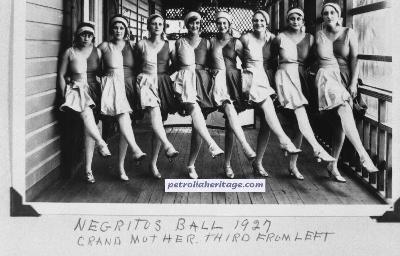 petroliaheritage.com
NEGRITOS BALL 1927
GRAND MOTHER. THIRD FROM LEFT